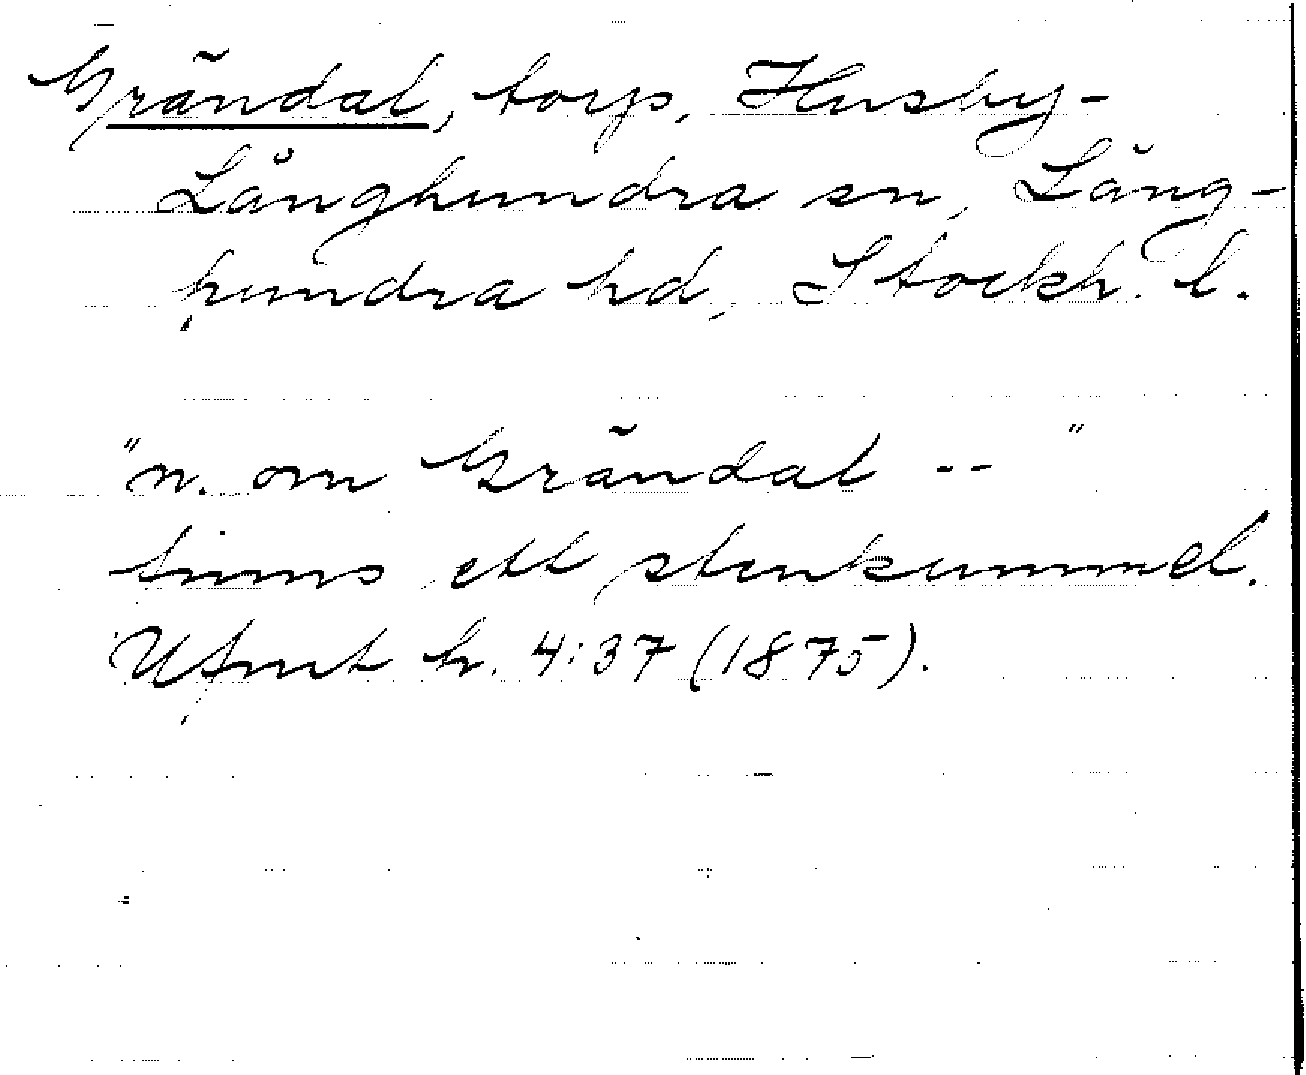 Gråndal, torp, Husby-
Långhundra sn, Lång-
hundra hd, Stockh. l.
"n. om Gråndal -- "
finns ett stenkummel.
UFmt h. 4:37 (1875).